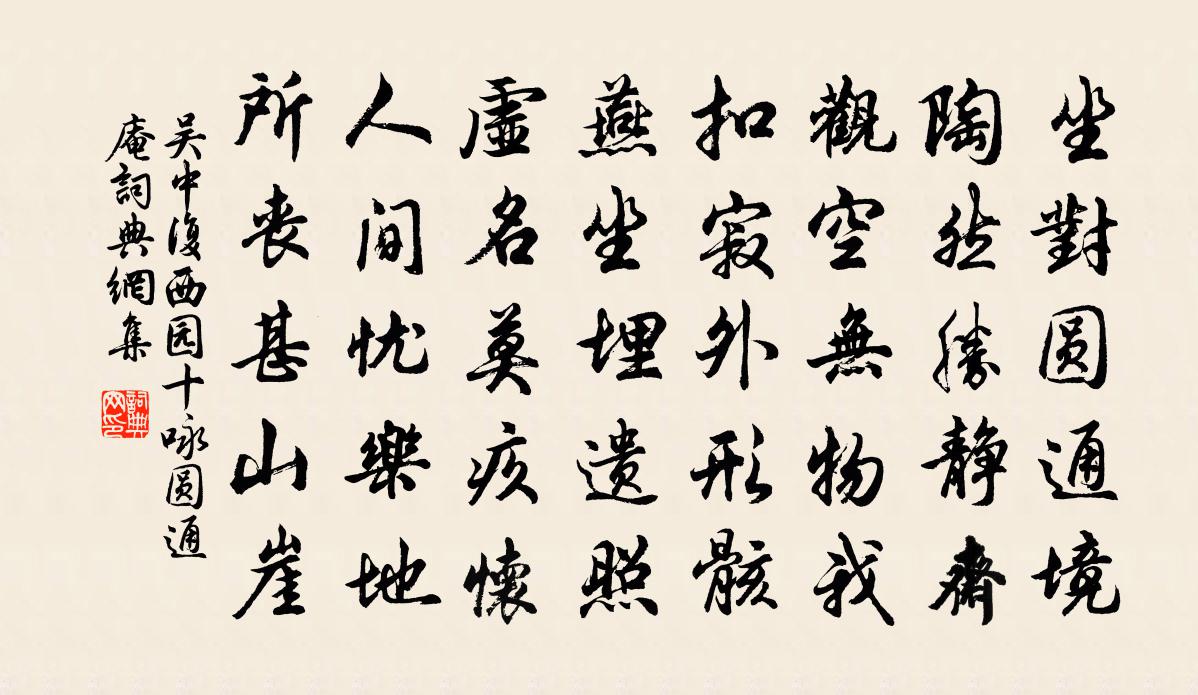 坐對圆通境
陶然勝静齋
觀空無物我
扣寂外形骸
燕坐埋遗照
虛名莫疚懷
人间忧樂地
所丧甚山崖
吴中復西园十咏圆通
庵詞典網集
詞典网印